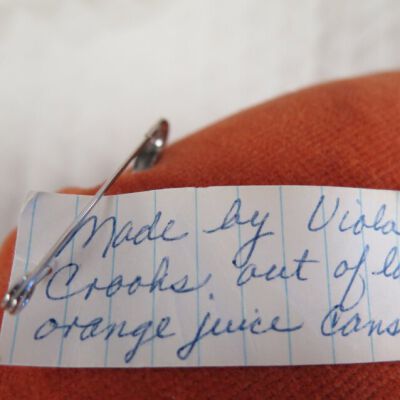 Made by Viola
Crooks out of
orange juice cans